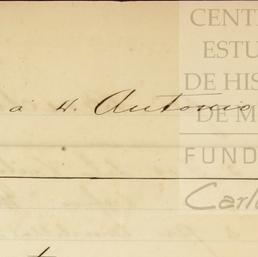 CENT
ESTU
DE HIS
á D. Antonio
DE M
FUND
Carl